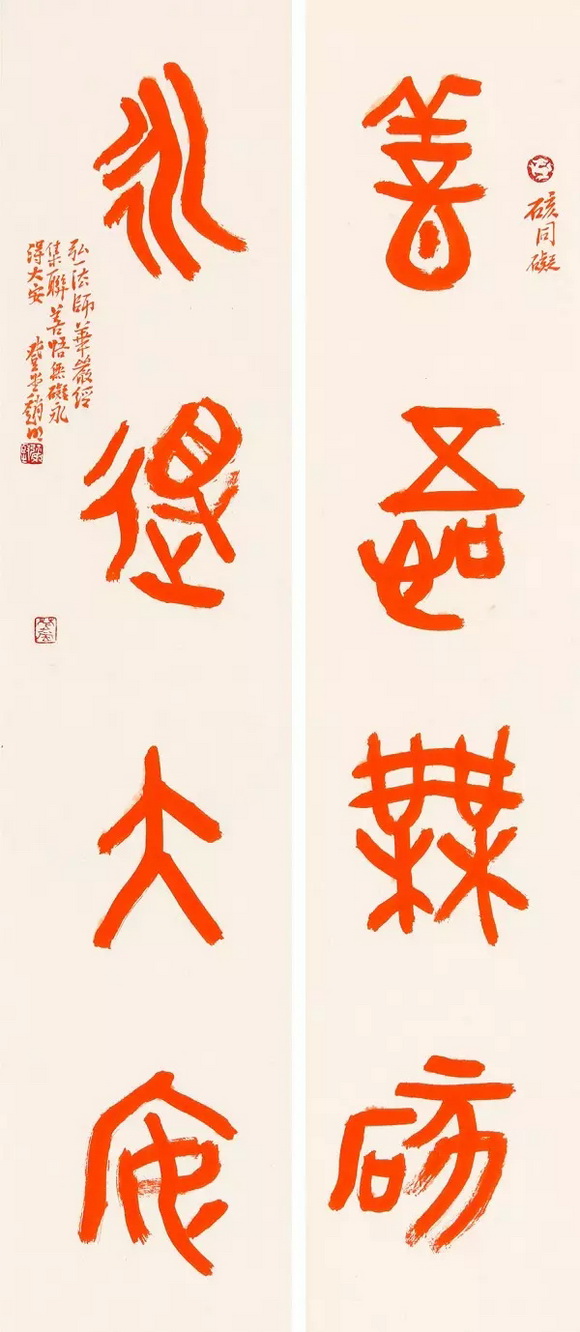 硋同礙
善悟無硋
永得大安
弘一法師華嚴經
集聯善悟無礙永
得大安